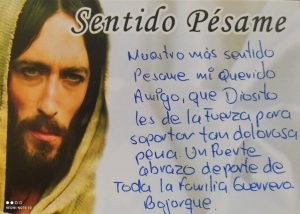 Sentido Pésame
Nuestro más sentido
Pesame mi querido
Amigo, que Diosito
les de la Fuerza para
soportar tan dolorosa
pena. Un Fuerte
abrazo de parte de
Toda la Familia Guerrero
Bojorque.